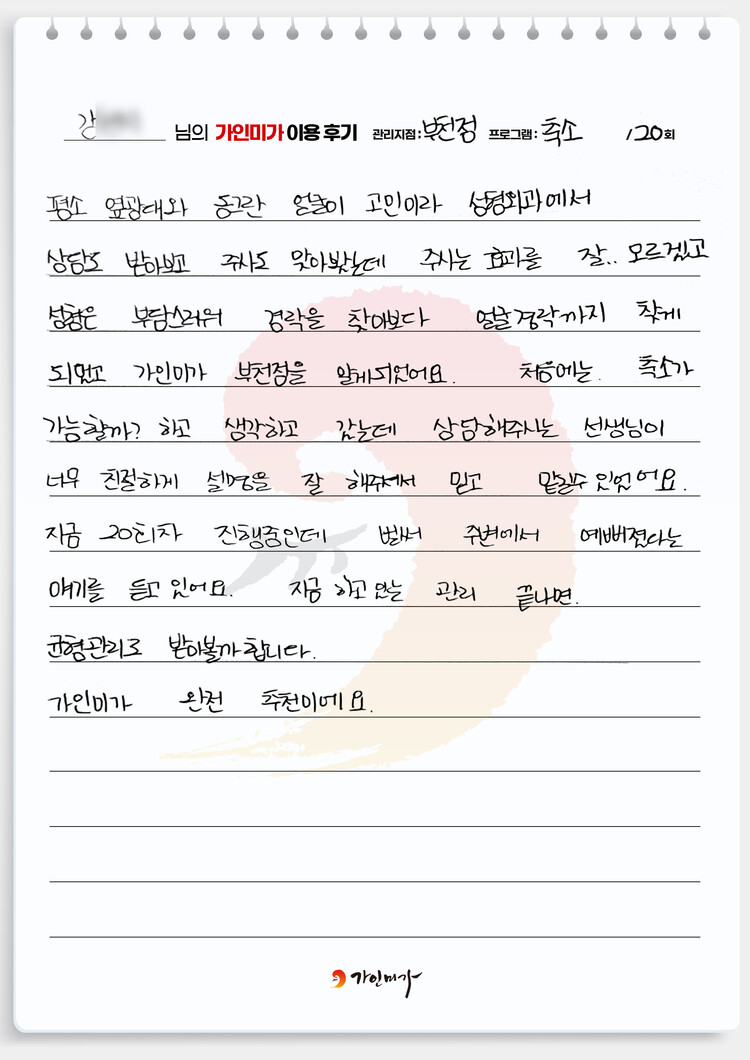 강 님의 가인미가 이용 후기 관리지점: 부천점 프로그램: 축소 /20회
평소 옆광대와 동그란 얼굴이 고민이라 성형외과에서
상담도 받아보고 주사도 맞아봤는데 주사는 효과를 잘.. 모르겠고
성형은 부담스러워 경락을 찾아보다 얼굴경락까지 찾게
되었고 가인미가 부천점을 알게되었어요. 처음에는. 축소가
가능할까? 하고 생각하고 갔는데 상담해주시는 선생님이
너무 친절하게 설명을 잘 해주셔서 믿고 맡길수 있었어요.
지금 20회차 진행중인데 벌써 주변에서 예뻐졌다는
얘기를 듣고 있어요. 지금 하고 있는 관리 끝나면.
균형관리로 받아볼까 합니다.
가인미가 완전 추천이에요.
가인미가